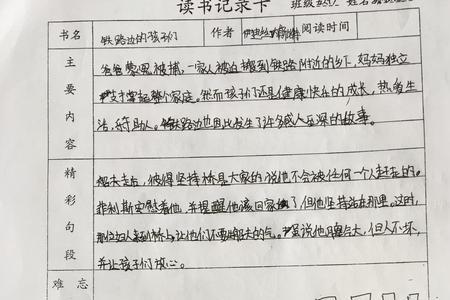 读书记录卡 班级 姓名
书名 铁路边的孩子们 作者 伊迪丝内斯比特 阅读时间
主要内容
爸爸蒙冤被捕，一家人被迫搬到铁路附近的乡下，妈妈独立
支撑起整个家庭。然而孩子们还是健康快乐的成长，热爱生
活，乐于助人。铁路边也因此发生了许多感人至深的故事。
精彩句段
船夫走后，彼得坚持桥是大家的说他不会被任何一个人赶走的。
菲利斯安慰着他，并提醒他该回家了，但他坚持站在那里。这时，
那位妇人来到桥上，让他们不要生船夫的气。虽说他脾气大，但人不坏，
并让孩子们放心。
难忘